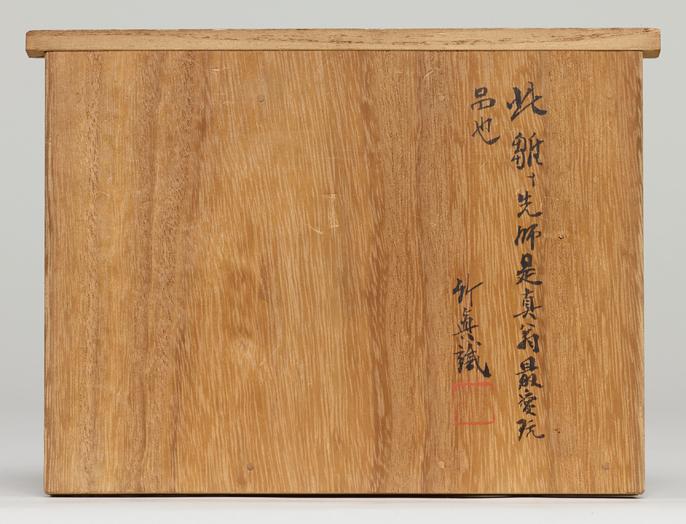 此雛先師是真翁最愛玩
品也
竹真識